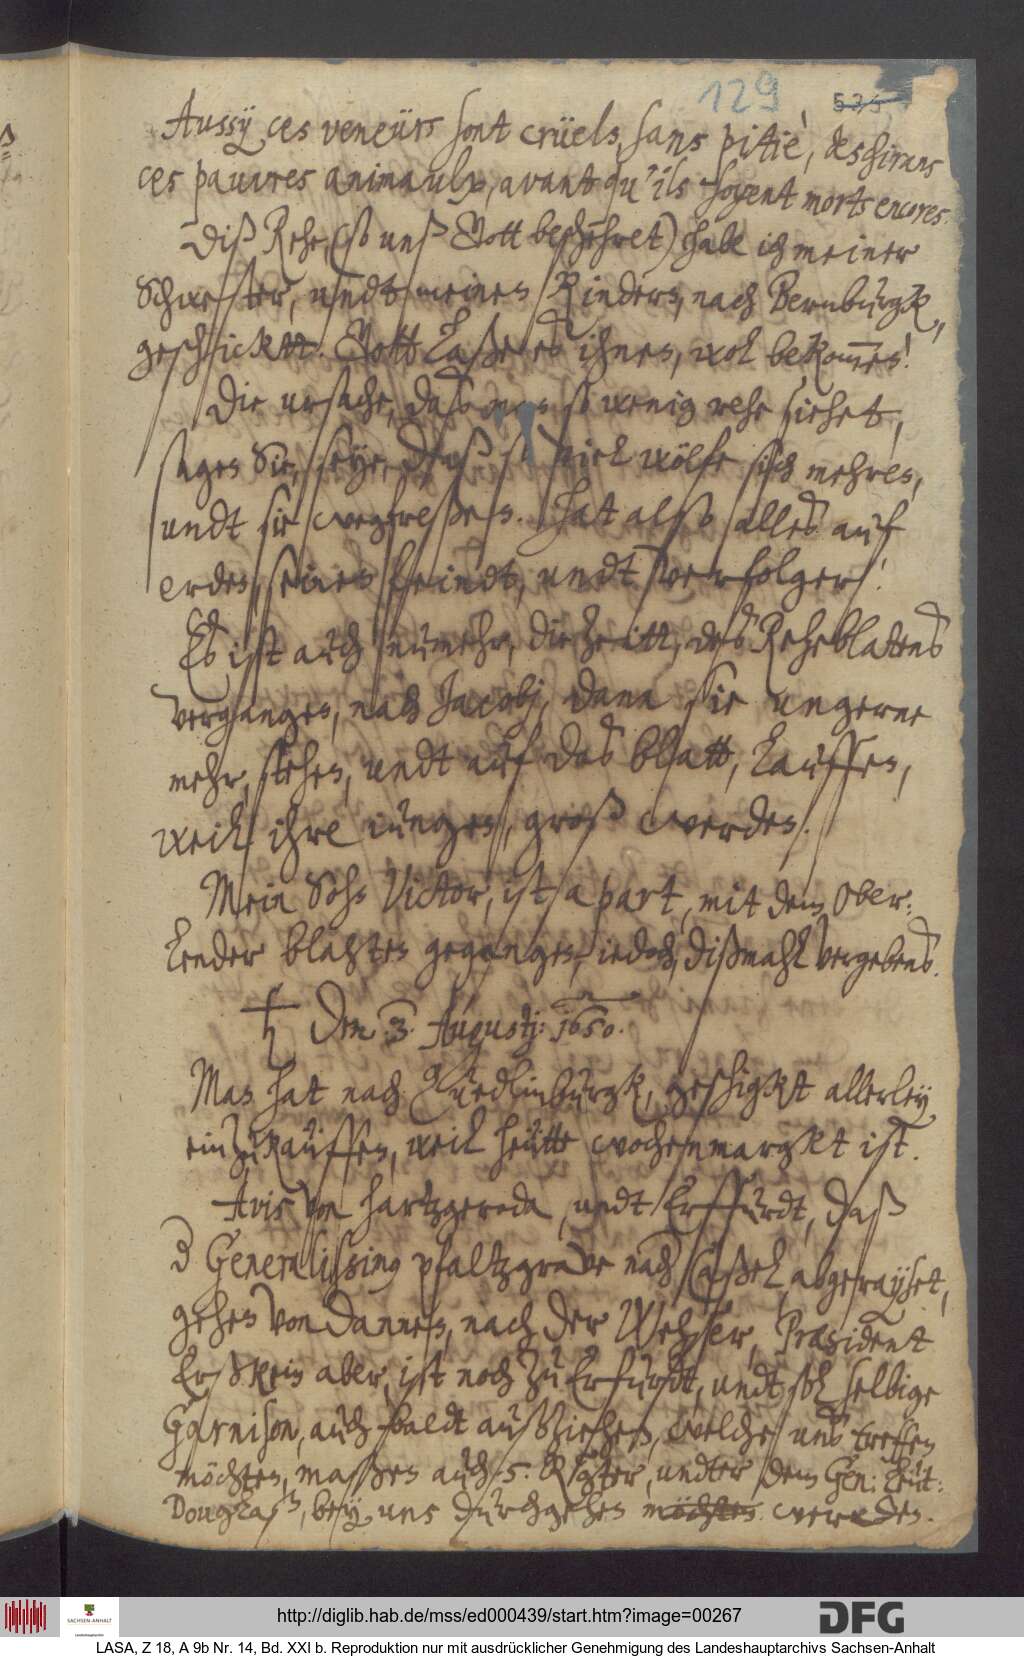 129
525
Aussÿ ces veneürs sont crüels, sans pitiè, deschirans
ces pauvres animaulx, avant qu'ils soyent morts encores.
Diß Rehe, (so unß Gott bescheret) habe ich meiner
Schwester, undt meinen Kindern, nach Bernburgk,
geschickt. Gott laße es ihnen, wol bekommen!
Die ursache, daß man so wenig rehe siehet,
sagen Sie, seye, daß so viel wölfe sich mehren,
undt sie wegfreßen. Hat also alles auf
erden, seinen feindt, undt verfolger!
Es ist auch numehr, die zeitt, des Reheblattens
vergangen, nach Jacobj, dann sie ungerne
mehr, stehen, undt auf das blatt, lauffen,
weil ihre iungen, groß werden.
Mein Sohn Victor, ist a part, mit dem Ober¬
lender blachten gegangen, iedoch, dißmahl vergebens.
♄ Den 3. Augustj: 1650.
Man hat nach Quedlinburgk, geschigkt allerley
einzukauffen, weil heütte wochenmargkt ist.
Avis von Hartzgeroda, undt Erffurdt, daß
d Generalissimg pfaltzgrave nach Caßel, abgerayset,
gehen von dannen, nach der Wehser, Præsident
Erßkein aber, ist noch zu Erfurdt, undt sol selbige
Garnison, auch baldt außziehen, welche uns treffen
möchten, maßen auch 5. Rgter, undter dem Gen: Leüt:
Douglaß, bey uns durchgehen möchten werden.
http://diglib.hab.de/mss/ed000439/start.htm?image=00267
SACHSEN-ANHALT
DFG
LASA, Z 18, A 9b Nr. 14, Bd. XXI b. Reproduktion nur mit ausdrücklicher Genehmigung des Landeshauptarchivs Sachsen-Anhalt